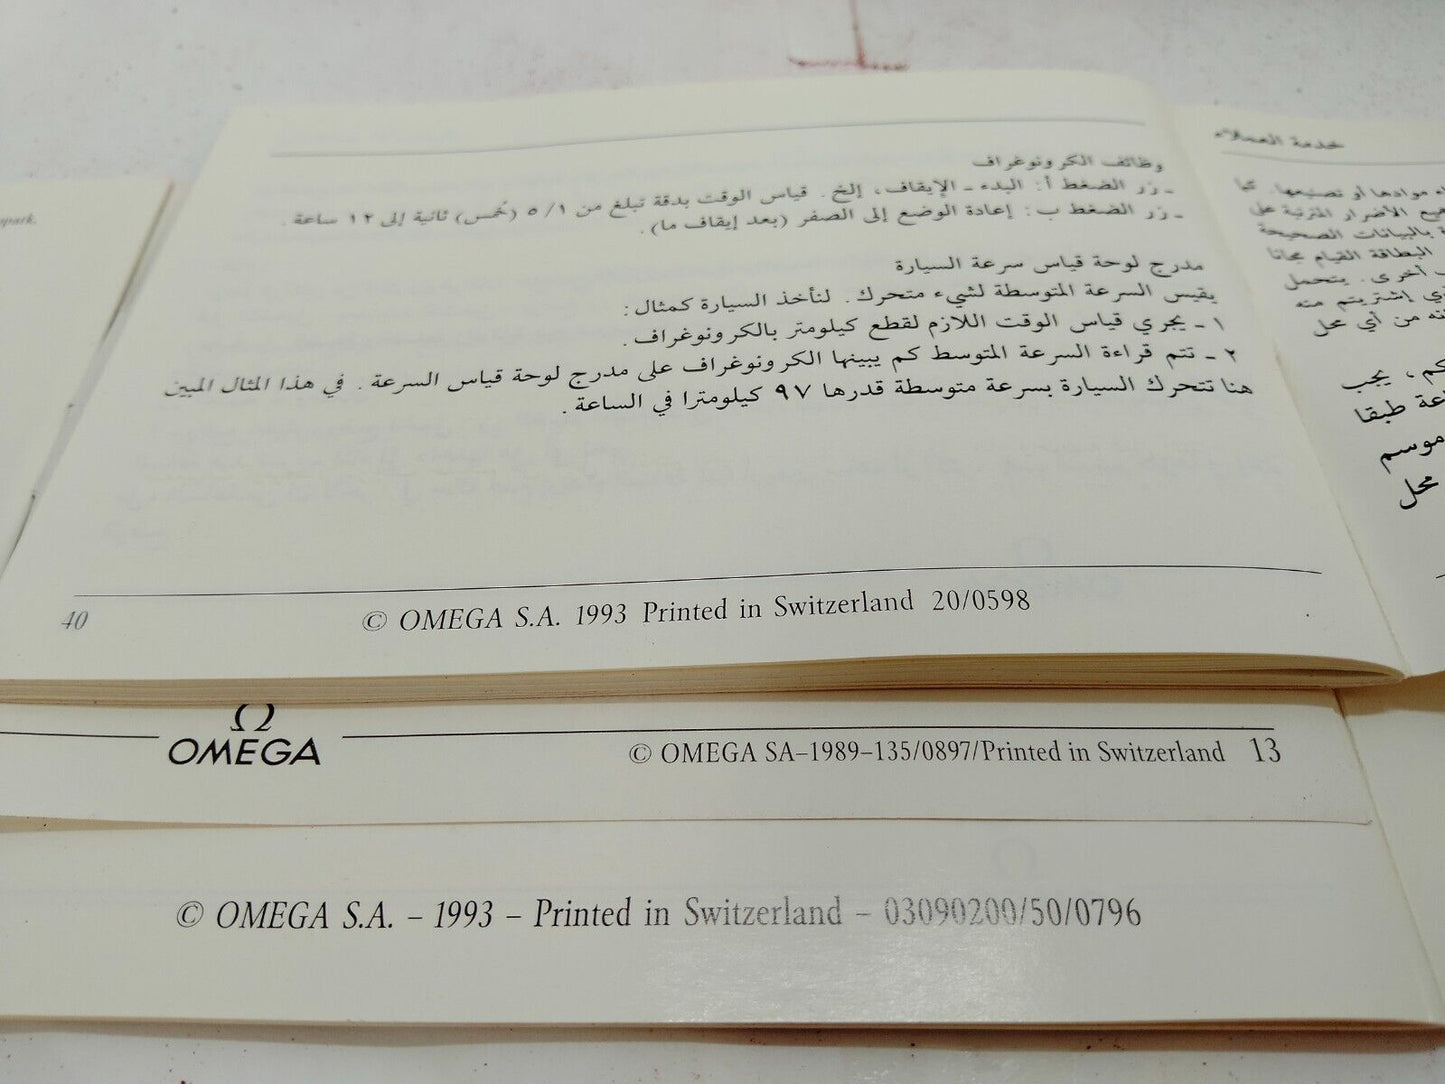 وظائف الكرونوغراف
ـ زر الضغط أ: البدء ـ الإيقاف، إلخ. قياس الوقت بدقة تبلغ من ٥/١ (خُمس) ثانية إلى ١٢ ساعة.
ـ زر الضغط ب: إعادة الوضع إلى الصفر (بعد إيقاف ما).
مدرج لوحة قياس سرعة السيارة
يقيس السرعة المتوسطة لشيء متحرك. لنأخذ السيارة كمثال:
١ ـ يجري قياس الوقت اللازم لقطع كيلومتر بالكرونوغراف.
٢ ـ تتم قراءة السرعة المتوسط كم يبينها الكرونوغراف على مدرج لوحة قياس السرعة. في هذا المثال المبين
هنا تتحرك السيارة بسرعة متوسطة قدرها ٩٧ كيلومترا في الساعة.
40
© OMEGA S.A. 1993 Printed in Switzerland 20/0598
خدمة العملاء
موادها أو تصنيعها. كما
الأضرار المترتبة على
بالبيانات الصحيحة
البطاقة القيام مجانا
أخرى. يتحمل
إشتريتم منه
من أي محل
يجب
طبقا
موسم
محل
Ω
OMEGA
© OMEGA SA–1989–135/0897/Printed in Switzerland 13
© OMEGA S.A. – 1993 – Printed in Switzerland – 03090200/50/0796